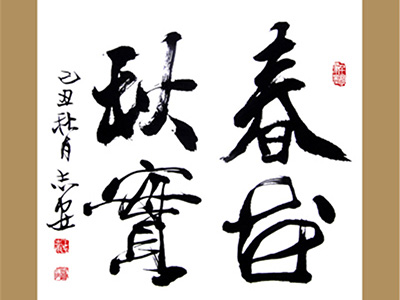 春華
秋實
己丑秋月志安